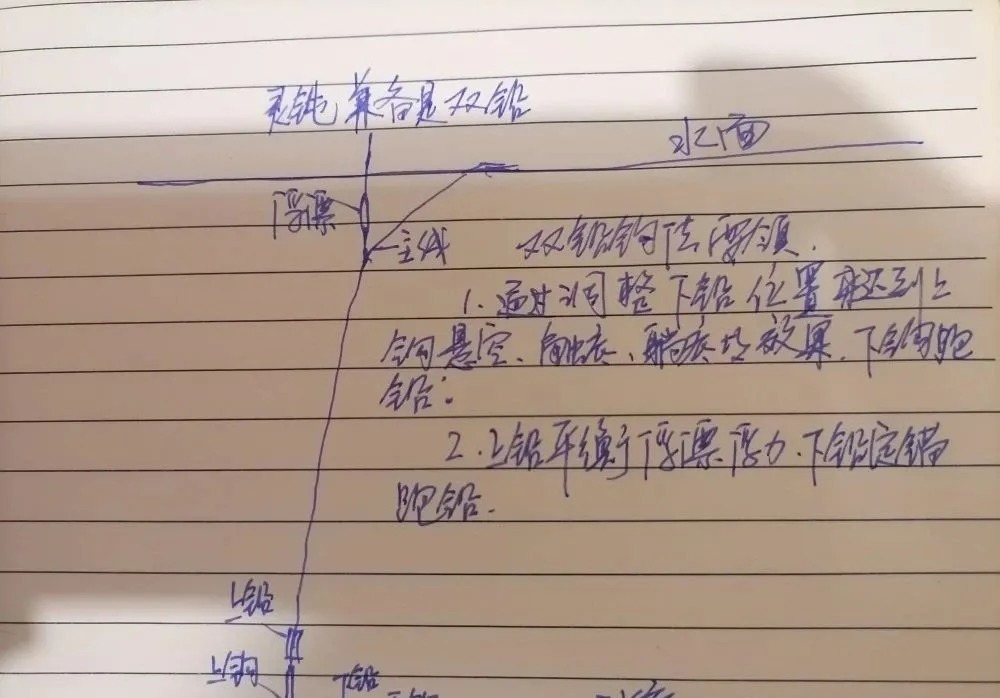 灵钝兼备是双铅
水面
浮漂
主线
双铅钓法要领.
1.通过调整下铅位置来达到上
钩悬空、触底、躺底的效果.下钩跑
铅:
2.上铅平衡浮漂浮力.下铅定锚
跑铅.
上铅
上钩
下铅